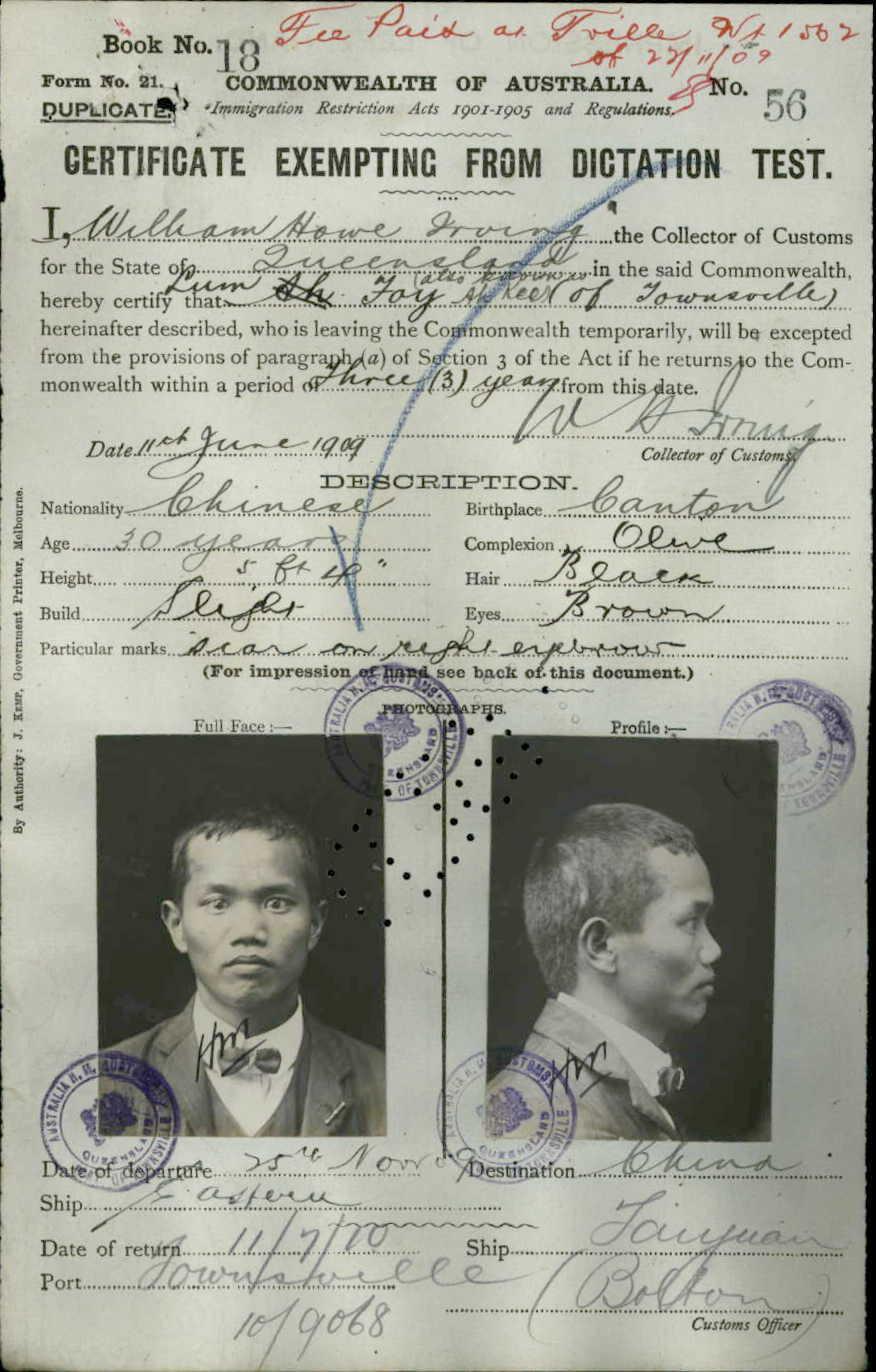 Fee Paid at T'ville
of 22/11/09
Book No. 18
Form No. 21.
COMMONWEALTH OF AUSTRALIA.
No. 56
DUPLICATE
Immigration Restriction Acts 1901-1905 and Regulations.
CERTIFICATE EXEMPTING FROM DICTATION TEST.
I, William Howe Irving the Collector of Customs
for the State of Queensland in the said Commonwealth,
(also known as
hereby certify that Lum Ah Foy Ah of Townsville)
hereinafter described, who is leaving the Commonwealth temporarily, will be excepted
from the provisions of paragraph (a) of Section 3 of the Act if he returns to the Com-
monwealth within a period of Three (3) years from this date.
W H Irving
Date 11th June 1909
Collector of Customs.
DESCRIPTION.
Nationality Chinese
Birthplace Canton
Age 30 years
Complexion Olive
Height 5 ft 4"
Hair Black
Build Slight
Eyes Brown
Particular marks scar on right eyebrow
(For impression of hand see back of this document.)
PHOTOGRAPHS.
Full Face :—
Profile :—
By Authority: J. KEMP, Government Printer, Melbourne.
AUSTRALIA H. M. CUSTOMS
QUEENSLAND
OF TOWNSVILLE
AUSTRALIA H. M. CUSTOMS
QUEENSLAND
TOWNSVILLE
AUSTRALIA H. M. CUSTOMS
QUEENSLAND
TOWNSVILLE
AUSTRALIA H. M. CUSTOMS
QUEENSLAND
TOWNSVILLE
Date of departure 25th Novr 09
Destination China
Ship Eastern
Date of return 11/7/10
Ship Taiyuan
Port Townsville
(Bolton)
Customs Officer
10/9068